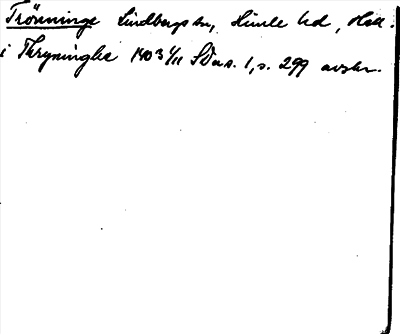 Trönninge Lindbergs sn, Himle hd, Hall.
i Thryninghe 1403 1/11 SDns. 1, s. 299 avskr.